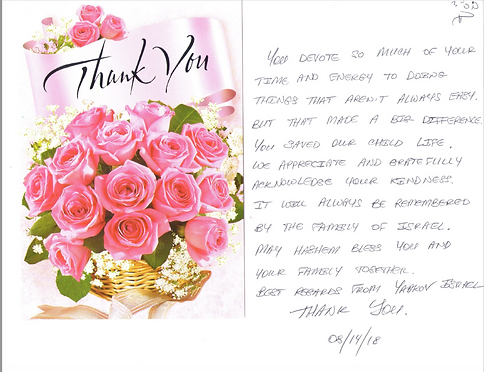 Thank You
YOU DEVOTE SO MUCH OF YOUR
TIME AND ENERGY TO DOING
THINGS THAT AREN'T ALWAYS EASY.
BUT THAT MADE A BIG DIFFERENCE.
YOU SAVED OUR CHILD LIFE.
WE APPRECIATE AND GRATEFULLY
ACKNOWLEDGE YOUR KINDNESS.
IT WILL ALWAYS BE REMEMBERED
BY THE FAMILY OF ISRAEL.
MAY HASHEM BLESS YOU AND
YOUR FAMILY TOGETHER.
BEST REGARDS FROM YAAKOV ISRAEL
THANK YOU.
08/14/18